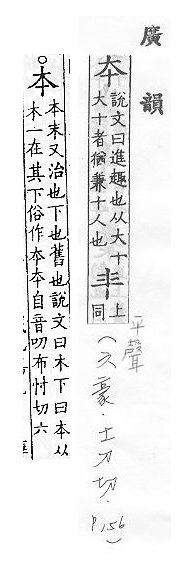 廣韻
夲 說文曰進趣也从大十
大十者猶兼十人也
𠦍 上
同
平聲
(六豪.土刀切.
P.156)
○本 本末又治也下也舊也說文曰木下曰本从
木一在其下俗作夲夲自音叨布忖切六